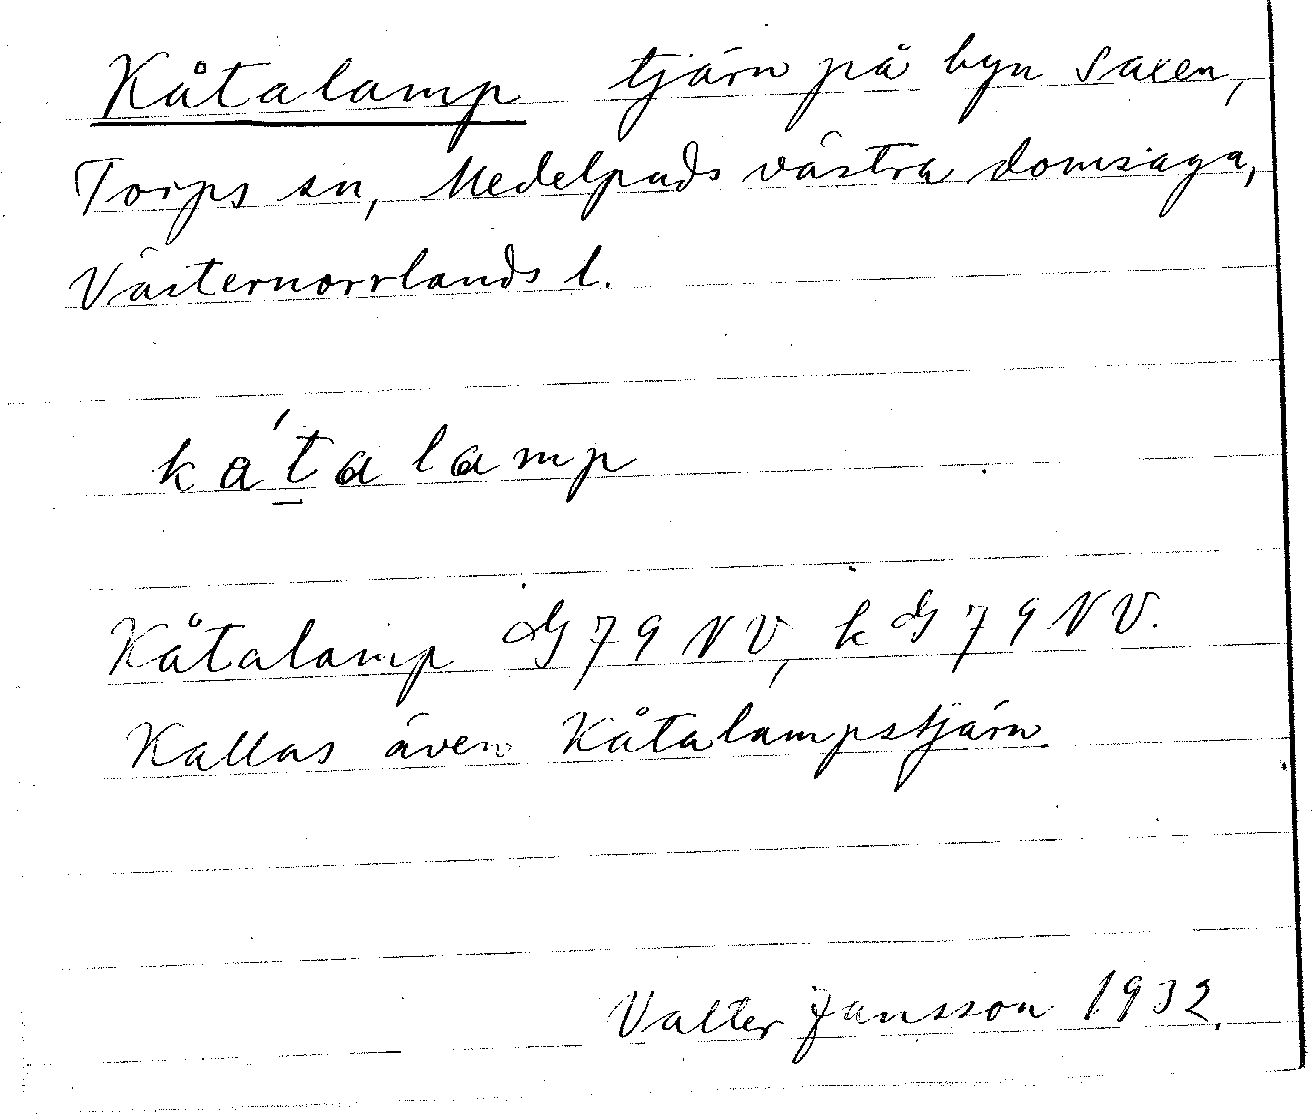 Kåtalamp tjärn på byn Saxen,
Torps sn, Medelpads västra domsaga,
Västernorrlands l.
ka't̲alamp
Kåtalamp G79NV, k G79NV.
Kallas även Kåtalampstjärn.
Valter Jansson 1932.